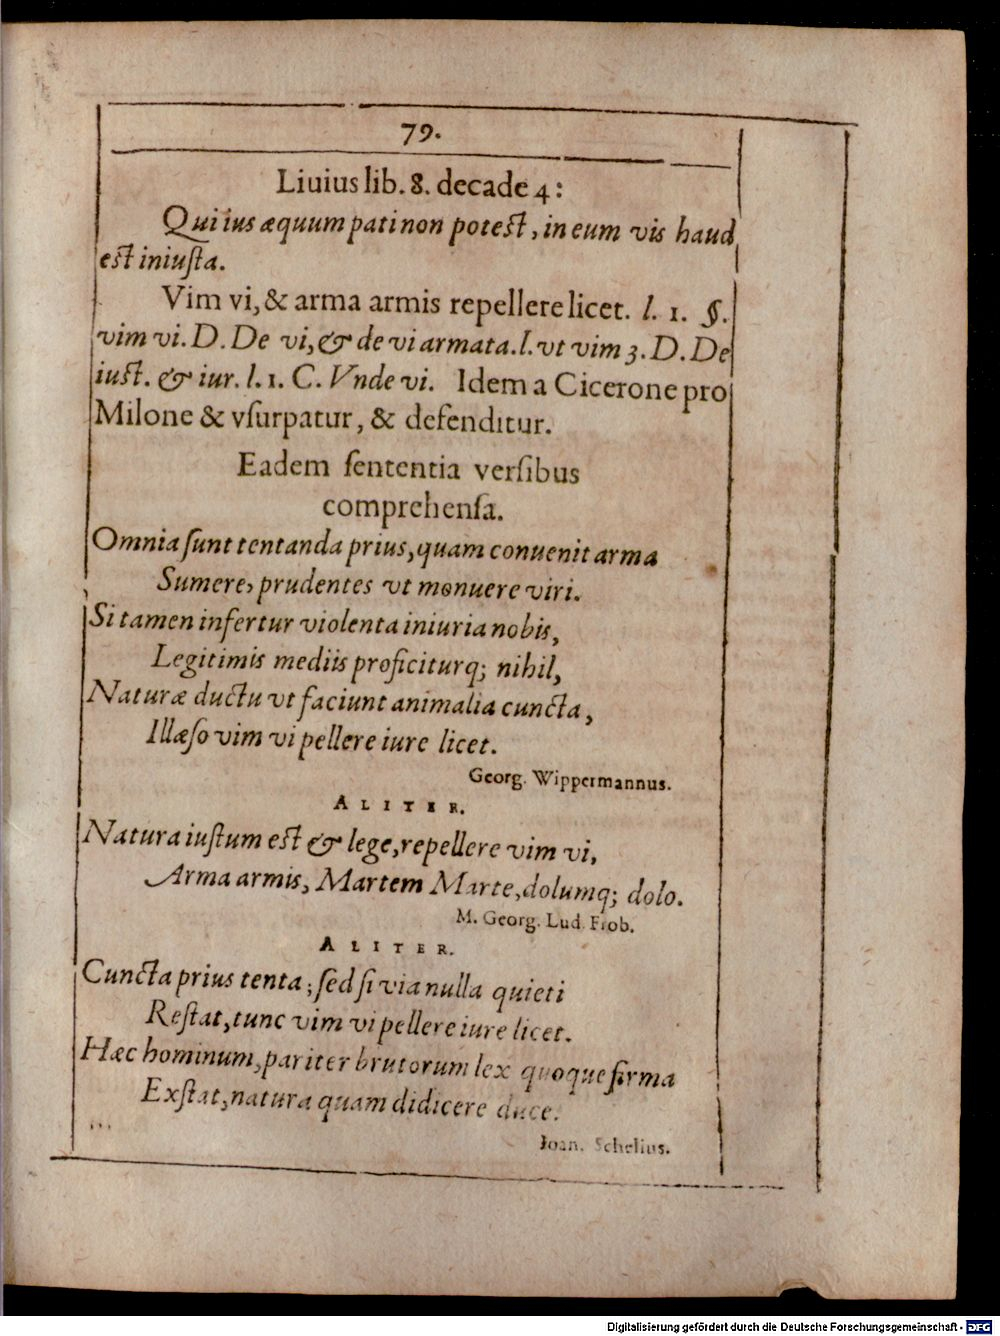 79.
Liuius lib. 8. decade 4:
Qui ius æquum pati non potest, in eum vis haud
est iniusta.
Vim vi, & arma armis repellere licet. l. 1. §.
vim vi. D. De vi, & de vi armata. l. vt vim 3. D. De
iust. & iur. l. 1. C. Vnde vi. Idem a Cicerone pro
Milone & vſurpatur, & defenditur.
Eadem ſententia verſibus
comprehenſa.
Omnia ſunt tentanda prius, quam conuenit arma
Sumere, prudentes vt monuere viri.
Si tamen infertur violenta iniuria nobis,
Legitimis mediis proficiturq; nihil,
Naturæ ductu vt faciunt animalia cuncta,
Illæſo vim vi pellere iure licet.
Georg. Wippermannus.
ALITER.
Natura iuſtum est & lege, repellere vim vi,
Arma armis, Martem Marte, dolumq; dolo.
M. Georg. Lud. Frob.
ALITER.
Cuncta prius tenta; ſed ſi via nulla quieti
Reſtat, tunc vim vi pellere iure licet.
Hæc hominum, pariter brutorum lex quoque firma
Exſtat, natura quam didicere duce.
Ioan. Schelius.
Digitalisierung gefördert durch die Deutsche Forschungsgemeinschaft - DFG